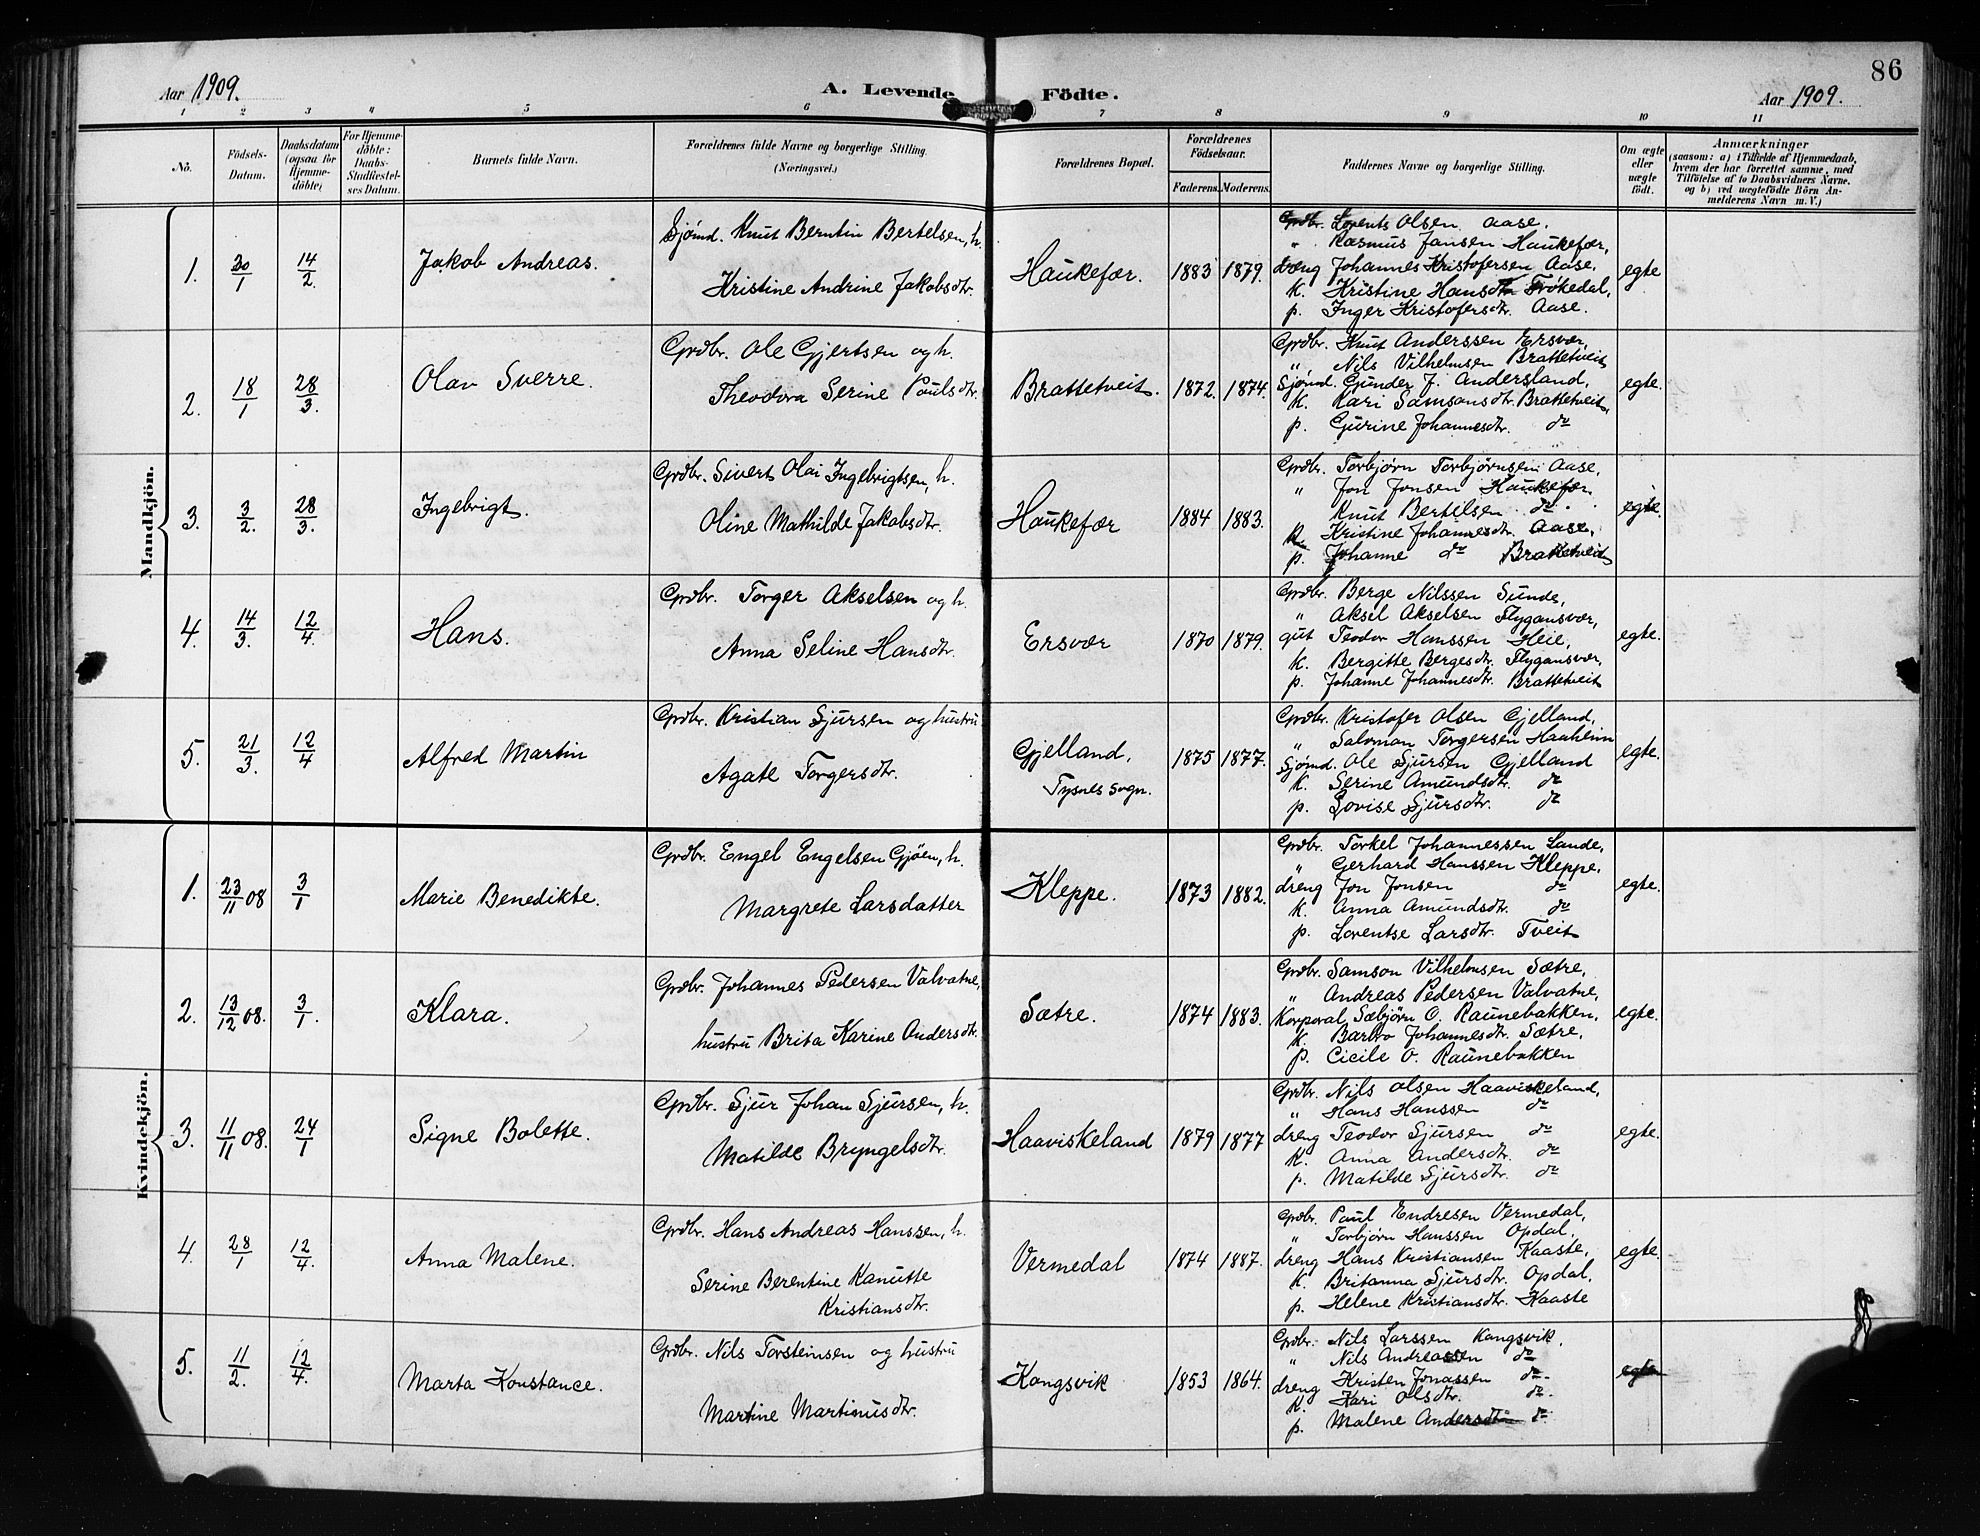 86
Aar 1909. A. Levende Födte. Aar 1909.
1 2 3 4 5 6 7 8 9 10 11
No.
Födsels-
Datum.
Daabsdatum
(ogsaa for
Hjemme-
döbte)
For Hjemme-
döbte:
Daabs-
Stadfæstel-
ses Datum.
Barnets fulde Navn.
Forældrenes fulde Navne og borgerlige Stilling.
(Næringsvei.)
Forældrenes Bopæl.
Forældrenes
Födselsaar.
Faderens. Moderens.
Faddernes Navne og borgerlige Stilling.
Om ægte
eller
uægte
födt.
Anmærkninger
(saasom: a) i Tilfælde af Hjemmedaab,
hvem der har forrettet samme, med
Tilföielse af to Daabsvidners Navne,
og b) ved uægtefödte Börn An-
melderens Navn m. V.)
Mandkjön.
1. 20/1 14/2. Jakob Andreas.
Sjømd. Knut Berntin Bertelsen, h.
Kristine Andrine Jakobsdtr.
Haukefær. 1883 1879.
Grdbr. Lorents Olsen Aase,
" Rasmus Jansen Haukefær,
dreng Johannes Kristofersen Aase,
k. Kristine Hansdtr. Trökedal,
p. Inger Kristofersdtr. Aase.
egte
2. 18/1 28/3. Olav Sverre.
Grdbr. Ole Gjertsen og h.
Theodora Serine Paulsdtr.
Brattetveit. 1872. 1874.
Grdbr. Knut Anderssen Ersvær,
" Nils Vilhelmsen Brattetveit
Sjömd. Gunder J. Andersland,
k. Kari Samsonsdtr. Brattetveit,
p. Gurine Johannesdtr. do
egte.
3. 3/2. 28/3. Ingebrigt.
Grdbr. Sivert Olai Ingebrigtsen, h.
Oline Mathilde Jakobsdtr.
Haukefær 1884 1883.
Grdbr. Torbjørn Torbjørnsen Aase,
" Jon Jonsen Haukefær.
Knut Bertelsen do.
k. Kristine Johannesdtr. Aase,
p. Johanne do Brattetveit
egte.
4. 14/3. 12/4. Hans.
Grdbr. Torger Akselsen og h.
Anna Seline Hansdtr.
Ersvær 1870 1879.
Grdbr. Berge Nilssen Sunde,
" Aksel Akselsen Flygansvær,
gut Teodor Hanssen Heie,
k. Bergitte Bergesdtr. Flygansvær,
p. Johanne Johannesdtr. Brattetveit
egte.
5. 21/3. 12/4 Alfred Martin
Grdbr. Kristian Sjursen og hustru
Agate Torgersdtr.
Gjelland,
Tysnes sogn.
1875 1877.
Grdbr. Kristofer Olsen Gjelland,
" Salomon Torgersen Haaheim
Sjömd. Ole Sjursen Gjelland
k. Serine Amundsdtr. do
p. Lovise Sjursdtr. do
egte.
Kvindekjön.
1. 23/11 08 3/1 Marie Benedikte.
Grdbr. Engel Engelsen Gjöen, h.
Margrete Larsdatter
Kleppe. 1873 1882.
Grdbr. Torkel Johannessen Lande,
" Gerhard Hanssen Kleppe,
dreng Jon Jonsen do
k. Anna Amundsdtr. do
p. Lorentse Larsdtr. Tveit
egte.
2. 13/12 08. 3/1. Klara.
Grdbr. Johannes Pedersen Valvatne,
hustru Brita Karine Andersdtr.
Sætre. 1874 1883.
Grdbr. Samson Vilhelmsen Sætre,
" Andreas Pedersen Valvatne,
Korporal Sæbjörn O. Raunebakken,
k. Barbro Johannesdtr. Sætre,
p. Cicile O. Raunebakken
egte.
3. 11/11 08. 24/1 Signe Bolette.
Grdbr. Sjur Johan Sjursen, h.
Matilde Bryngelsdtr.
Haaviskeland 1879 1877
Grdbr. Nils Olsen Haaviskeland,
" Hans Hanssen do
dreng Teodor Sjursen do
k. Anna Andersdtr. do
p. Matilde Sjursdtr. do
egte.
4. 28/1 12/4. Anna Malene.
Grdbr. Hans Andreas Hanssen, h.
Serine Berentine Kanutte
Kristiansdtr.
Vermedal 1874 1887.
Grdbr. Paul Endresen Vermedal,
" Torbjørn Hanssen Opdal,
dreng Hans Kristiansen Kaaste,
k. Britanna Sjursdtr. Opdal,
p. Helene Kristiansdtr. Kaaste
egte.
5. 11/2. 12/4. Marta Konstance.
Grdbr. Nils Torsteinsen og hustru
Martine Martinusdtr.
Kongsvik 1853 1864.
Grdbr. Nils Larssen Kongsvik,
" Nils Andreassen do
dreng Kristen Jonassen do.
k. Kari Olsdtr. do.
p. Malene Andersdtr. do
egte